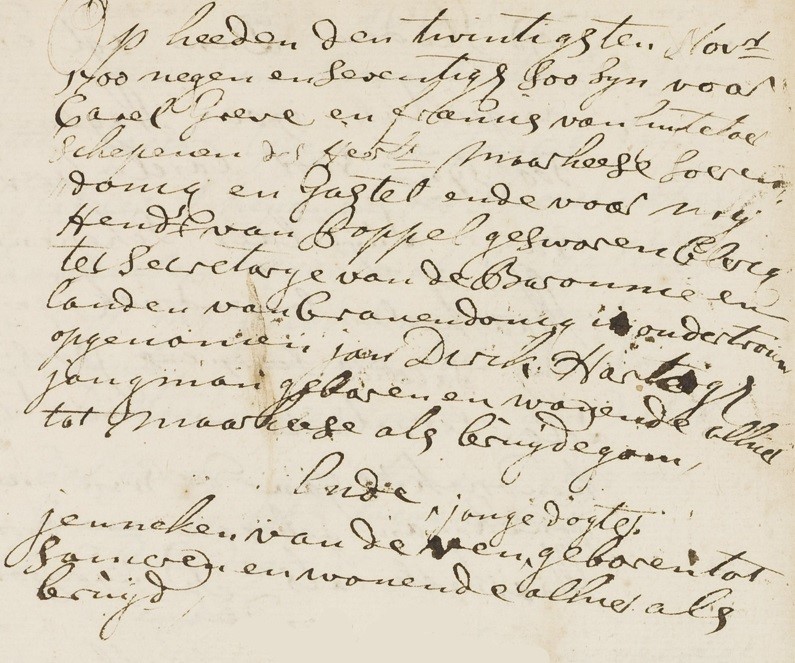 Op heeden den twintigsten Novr
1700 negen en seventigh soo syn voor
Carel Greve en francis van
schepenen der Heerl: Maarheese Soeren
donq en Gastel ende voor mij
Hendk van Poppel geswoeren Clercq
ter Secretarye van de Baronnie en
landen van Cranendonq in ondertrouw
opgenomen jan Dirk Hartogs
jongman geboren en wonende alhier
tot Maarheese als bruijdegom,
Ende
jonge dogter
jenneken van de ven, geboren tot
Someren en wonende alhier als
bruijd